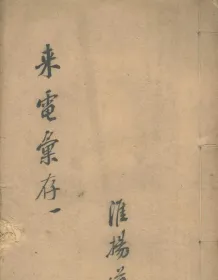 来電彙存一
淮揚